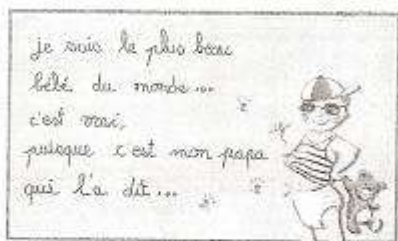 je suis le plus beau
bébé du monde...
c'est vrai,
puisque c'est mon papa
qui l'a dit...